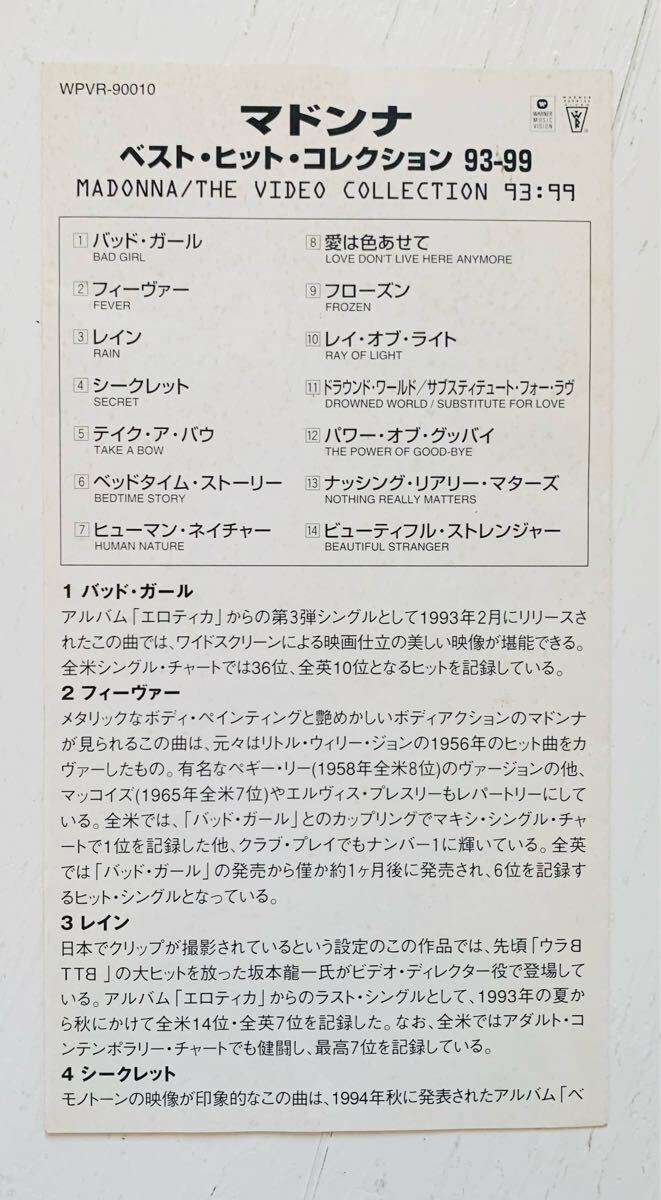 WPVR-90010
マドンナ
ベスト・ヒット・コレクション 93-99
MADONNA/THE VIDEO COLLECTION 93:99
WARNER MUSIC VISION
1 バッド・ガール
BAD GIRL
2 フィーヴァー
FEVER
3 レイン
RAIN
4 シークレット
SECRET
5 テイク・ア・バウ
TAKE A BOW
6 ベッドタイム・ストーリー
BEDTIME STORY
7 ヒューマン・ネイチャー
HUMAN NATURE
8 愛は色あせて
LOVE DON'T LIVE HERE ANYMORE
9 フローズン
FROZEN
10 レイ・オブ・ライト
RAY OF LIGHT
11 ドラウンド・ワールド/サブスティテュート・フォー・ラヴ
DROWNED WORLD / SUBSTITUTE FOR LOVE
12 パワー・オブ・グッバイ
THE POWER OF GOOD-BYE
13 ナッシング・リアリー・マターズ
NOTHING REALLY MATTERS
14 ビューティフル・ストレンジャー
BEAUTIFUL STRANGER
1 バッド・ガール
アルバム「エロティカ」からの第3弾シングルとして1993年2月にリリースさ
れたこの曲では、ワイドスクリーンによる映画仕立の美しい映像が堪能できる。
全米シングル・チャートでは36位、全英10位となるヒットを記録している。
2 フィーヴァー
メタリックなボディ・ペインティングと艶めかしいボディアクションのマドンナ
が見られるこの曲は、元々はリトル・ウィリー・ジョンの1956年のヒット曲をカ
ヴァーしたもの。有名なペギー・リー(1958年全米8位)のヴァージョンの他、
マッコイズ(1965年全米7位)やエルヴィス・プレスリーもレパートリーにして
いる。全米では、「バッド・ガール」とのカップリングでマキシ・シングル・チャ
ートで1位を記録した他、クラブ・プレイでもナンバー1に輝いている。全英
では「バッド・ガール」の発売から僅か約1ヶ月後に発売され、6位を記録す
るヒット・シングルとなっている。
3 レイン
日本でクリップが撮影されているという設定のこの作品では、先頃「ウラB
BTT」の大ヒットを放った坂本龍一氏がビデオ・ディレクター役で登場して
いる。アルバム「エロティカ」からのラスト・シングルとして、1993年の夏か
ら秋にかけて全米14位・全英7位を記録した。なお、全米ではアダルト・コ
ンテンポラリー・チャートでも健闘し、最高7位を記録している。
4 シークレット
モノトーンの映像が印象的なこの曲は、1994年秋に発表されたアルバム「ベ